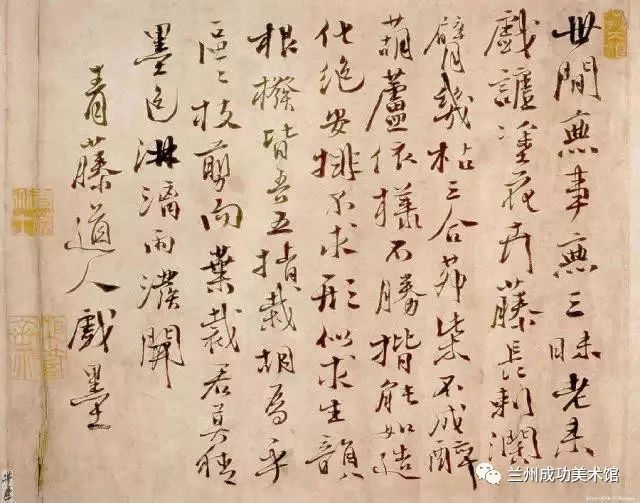 世間無事無三昧老來
戲謔塗花卉藤長刺闊
臂幾枯三合茆柴不成醉
葫蘆依樣不勝揩能如造
化絕安排不求形似求生韻
根撥皆吾五指栽胡為乎
區〻枝剪向葉裁君莫猜
墨色淋漓雨潑開
青藤道人戲墨
兰州成功美术馆